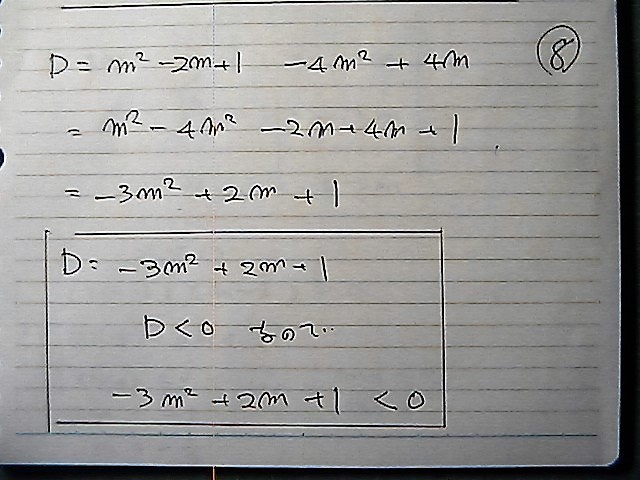 ⑧
D = m² -2m+1 -4m² + 4m
= m² - 4m² -2m+4m+1
= -3m² + 2m + 1
D = -3m² + 2m+1
D<0 なので..
-3m² +2m +1 <0